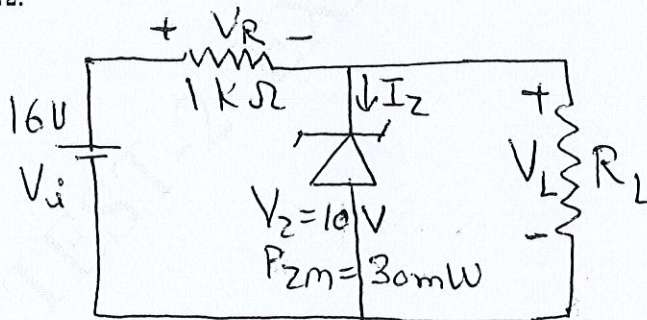 + VR -
1KΩ
↓IZ
16V
Vi
+
VL
RL
-
VZ=10V
PZM=30mW